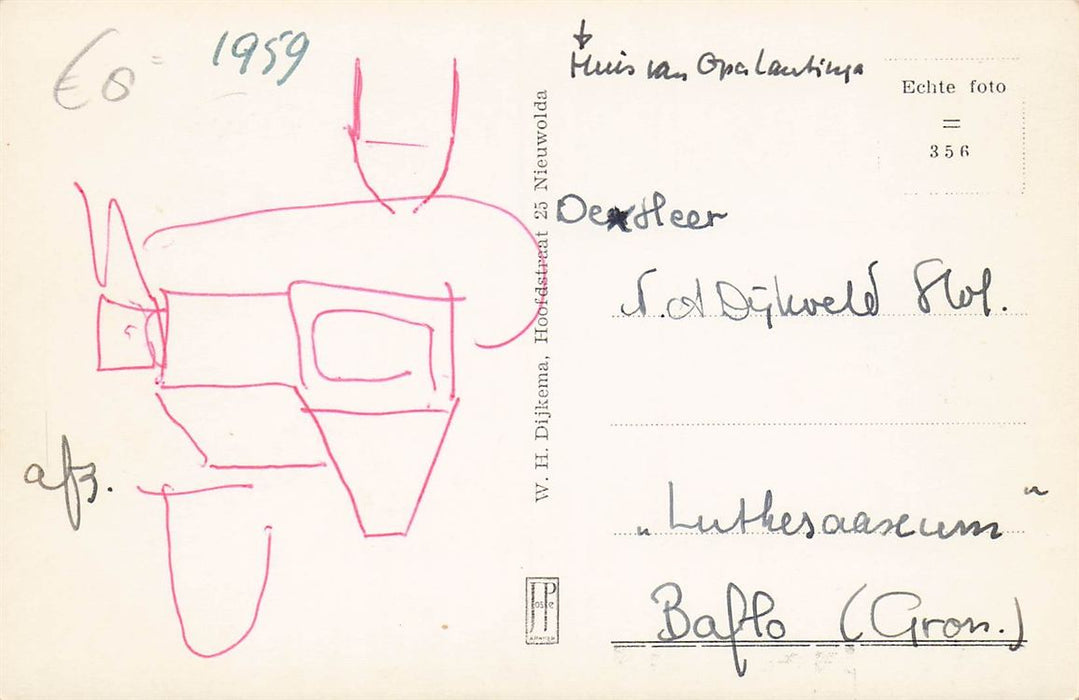 €8 =
1959
Huis van Opa Lantinga
Echte foto
=
356
W. H. Dijkema, Hoofdstraat 25 Nieuwolda
De Heer
N. A Dijkveld Stol.
afz.
„Lutkesaaxum"
JP
Baflo (Gron.)